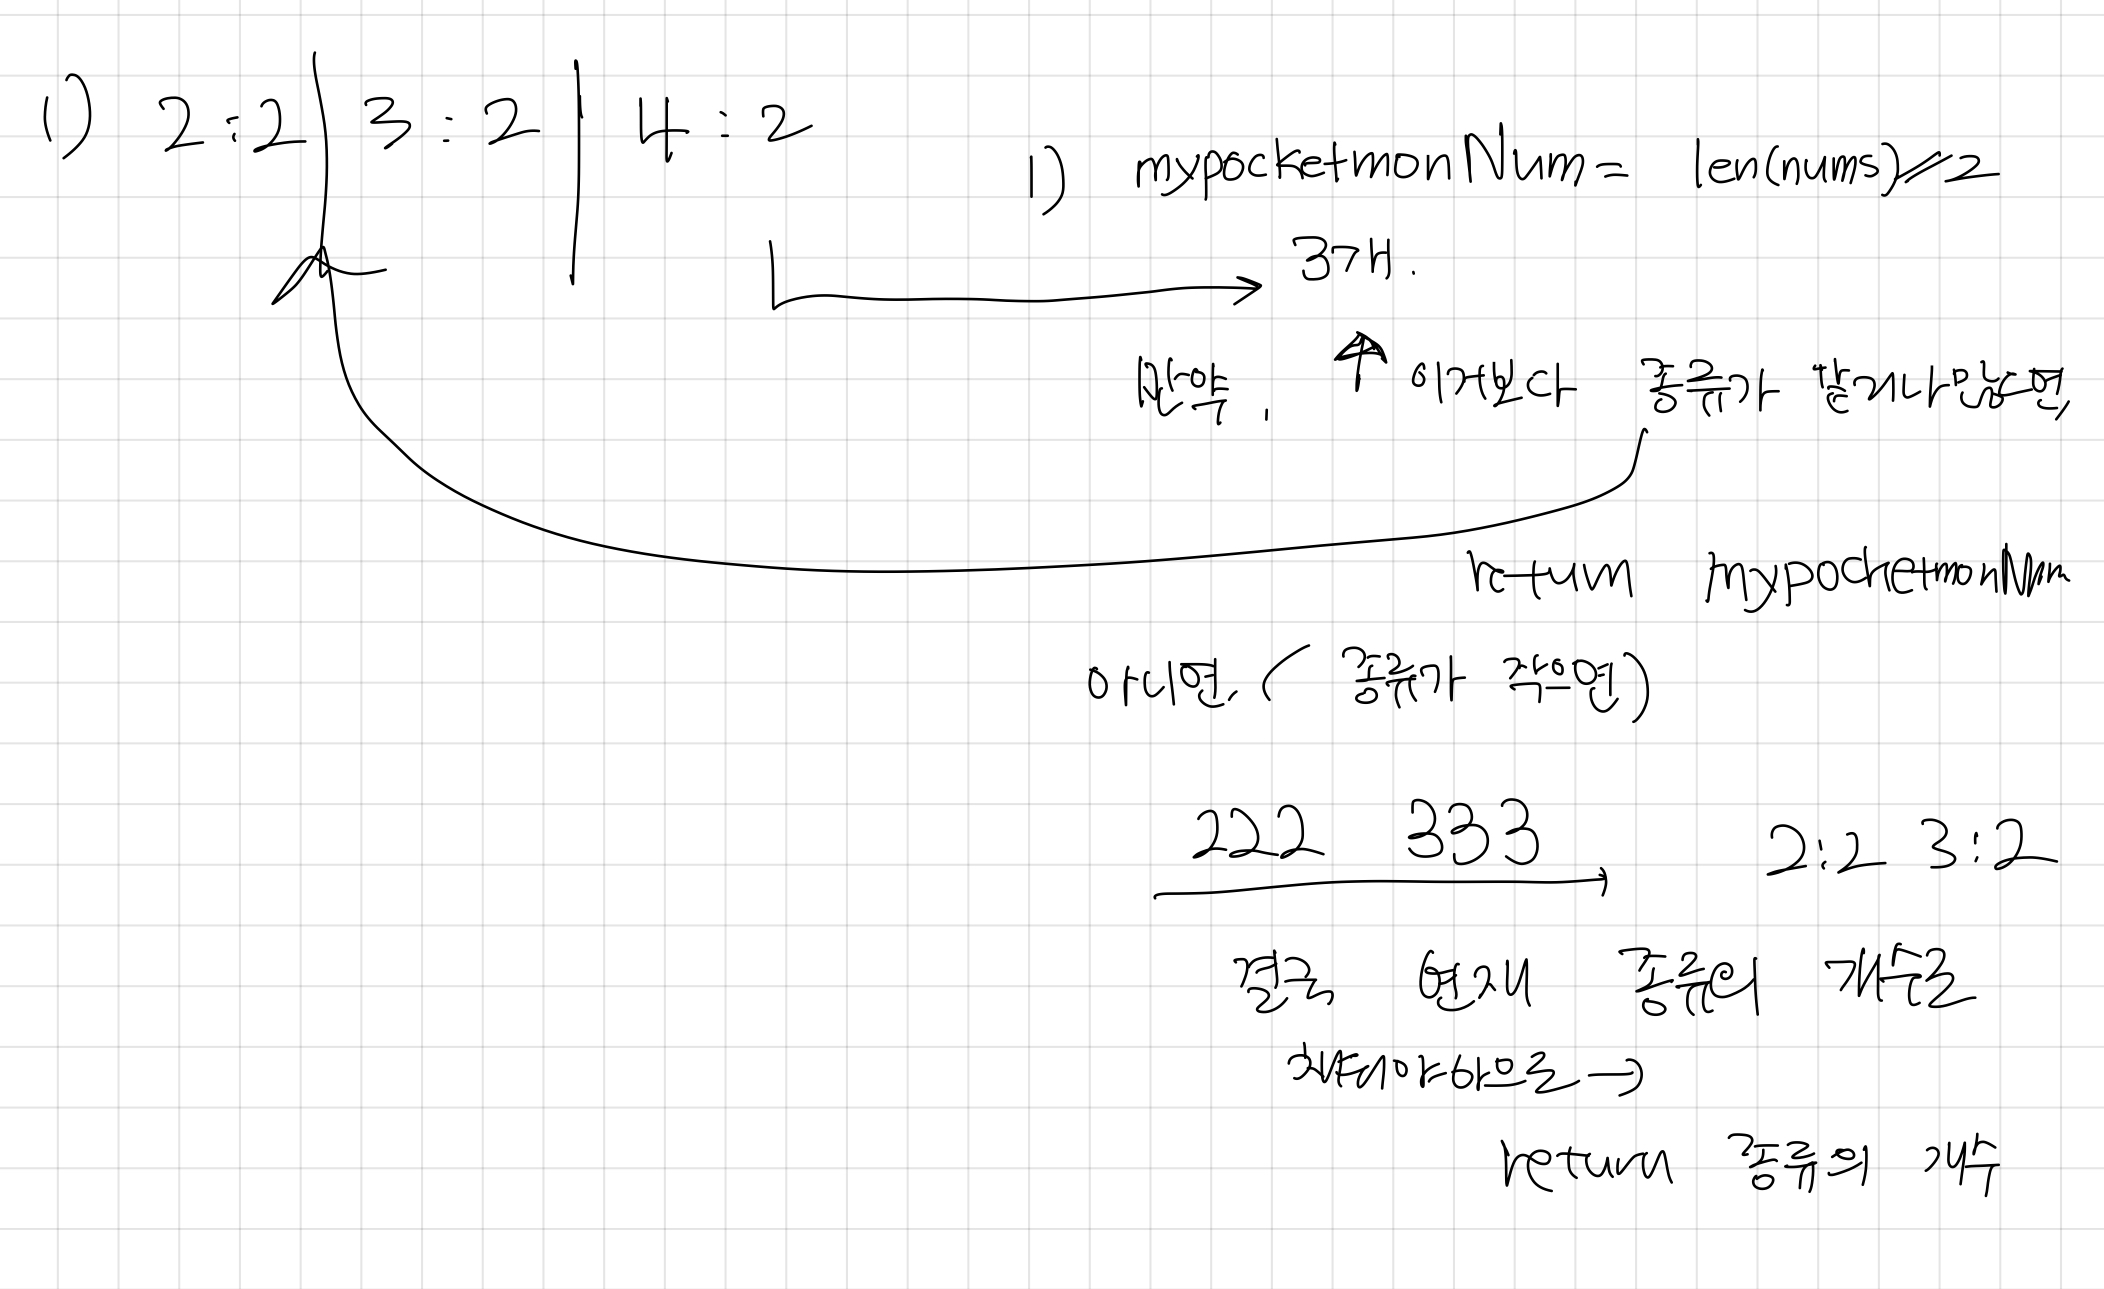 1) 2:2 | 3:2 | 4:2
1) mypocketmonNum = len(nums)//2
3개.
만약, 이거보다 종류가 같거나 많으면,
return mypocketmonNum
아니면, (종류가 작으면)
222 333 2:2 3:2
결국 현재 종류의 개수로
채워야하므로 →
return 종류의 개수